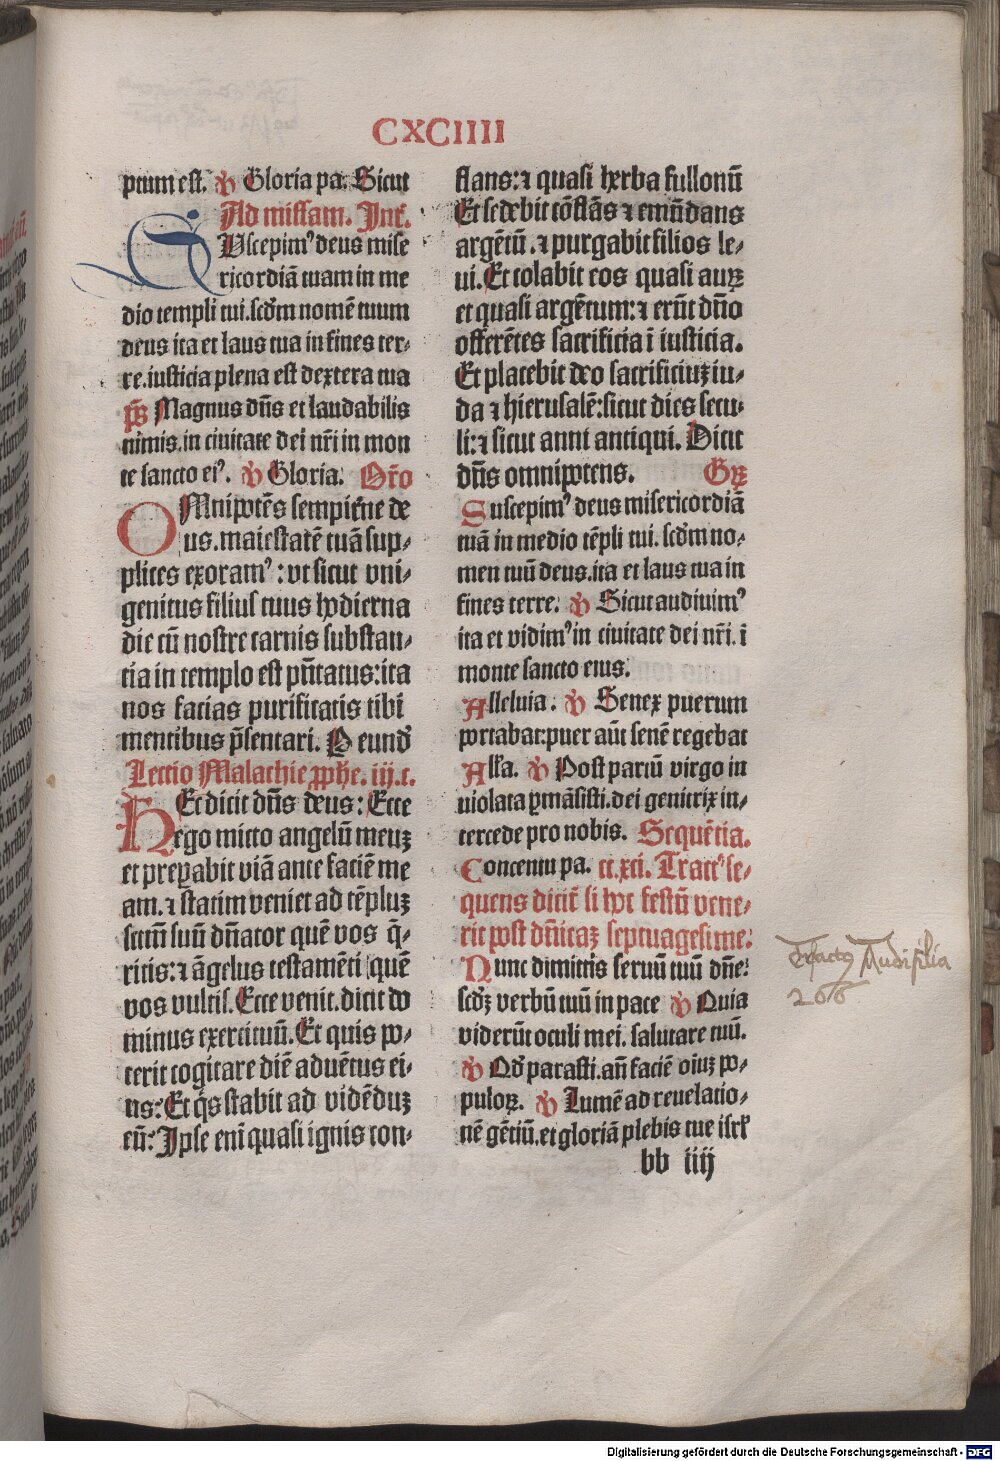 CXCIIII
ptum est. ℣ Gloria pa. Sicut
Ad missam. Int̄.
SUscepim⁹ deus mise
ricordiā tuam in me
dio templi tui. scd̄m nomē tuum
deus ita et laus tua in fines ter-
re. iusticia plena est dextera tua
p̄s Magnus dn̄s et laudabilis
nimis. in ciuitate dei nr̄i in mon
te sancto ei⁹. ℣ Gloria. Or̄o
OMnipotēs sempiterne de
us. maiestatē tuā sup-
plices exoram⁹: vt sicut vni-
genitus filius tuus hodierna
die cū nostre carnis substan-
tia in templo est pn̄tatus: ita
nos facias purificatis tibi
mentibus p̄sentari. P eund̄
Lectio Malachie ꝓphe. iij. c.
HEc dicit dn̄s deus: Ecce
ego mitto angelū meuꝫ
et prepabit viā ante faciē me
am. ⁊ statim veniet ad tēpluꝫ
sctm̄ suū dn̄ator quē vos q̄-
ritis: ⁊ āgelus testamēti quē
vos vultis. Ecce venit. dicit do
minus exercituū. Et quis po-
terit cogitare diē aduētus ei-
us: Et q̇s stabit ad vidēduꝫ
eū: Ipse eni quasi ignis con-
flans: ⁊ quasi herba fullonū
Et sedebit cōflās ⁊ emūdans
argētū. ⁊ purgabit filios le-
ui. Et colabit eos quasi auꝝ
et quasi argētum: ⁊ erūt dn̄o
offerētes sacrificia ī iusticia.
Et placebit deo sacrificiuꝫ iu-
da ⁊ hierusalē: sicut dies secu-
li: ⁊ sicut anni antiqui. Dicit
dn̄s omnipotens. Gꝝ
Suscepim⁹ deus misericordiā
tuā in medio tēpli tui. scd̄m no-
men tuū deus. ita et laus tua in
fines terre. ℣ Sicut audiuim⁹
ita et vidim⁹ in ciuitate dei nr̄i. ī
monte sancto eius.
Alleluia. ℣ Senex puerum
portabat: puer aūt senē regebat
All̄a. ℣ Post partū virgo in
uiolata ꝑmāsisti. dei genitrix in-
tercede pro nobis. Sequētia.
Concentu pa. cc. xci. Tract⁹ se-
quens dicit̄ si hoc festū vene-
rit post dn̄icaꝫ septuagesime.
Nunc dimittis seruū tuū dn̄e:
scd̄ꝫ verbū tuū in pace ℣ Quia
viderūt oculi mei. salutare tuū.
℣ Qd̄ parasti. an̄ faciē oīuꝫ po-
puloꝝ. ℣ Lumē ad reuelatio-
nē gētiū. et gloriā plebis tue isrl̄
bb iiij
Tractꝯ Audi filia
266
Digitalisierung gefördert durch die Deutsche Forschungsgemeinschaft - DFG